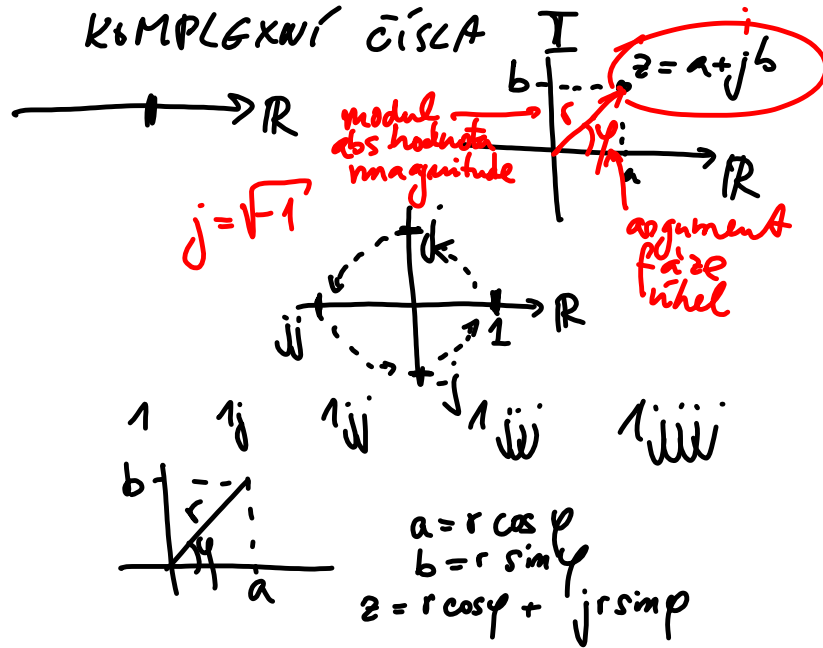 KOMPLEXNÍ ČÍSLA
I
j
b
z = a + jb
r
φ
a
R
R
modul
abs hodnota
magnitude
j = √-1
argument
fáze
úhel
j
jj
1
R
-j
1 1j 1jj 1jjj 1jjjj
b
r
φ
a
a = r cos φ
b = r sin φ
z = r cos φ + j r sin φ